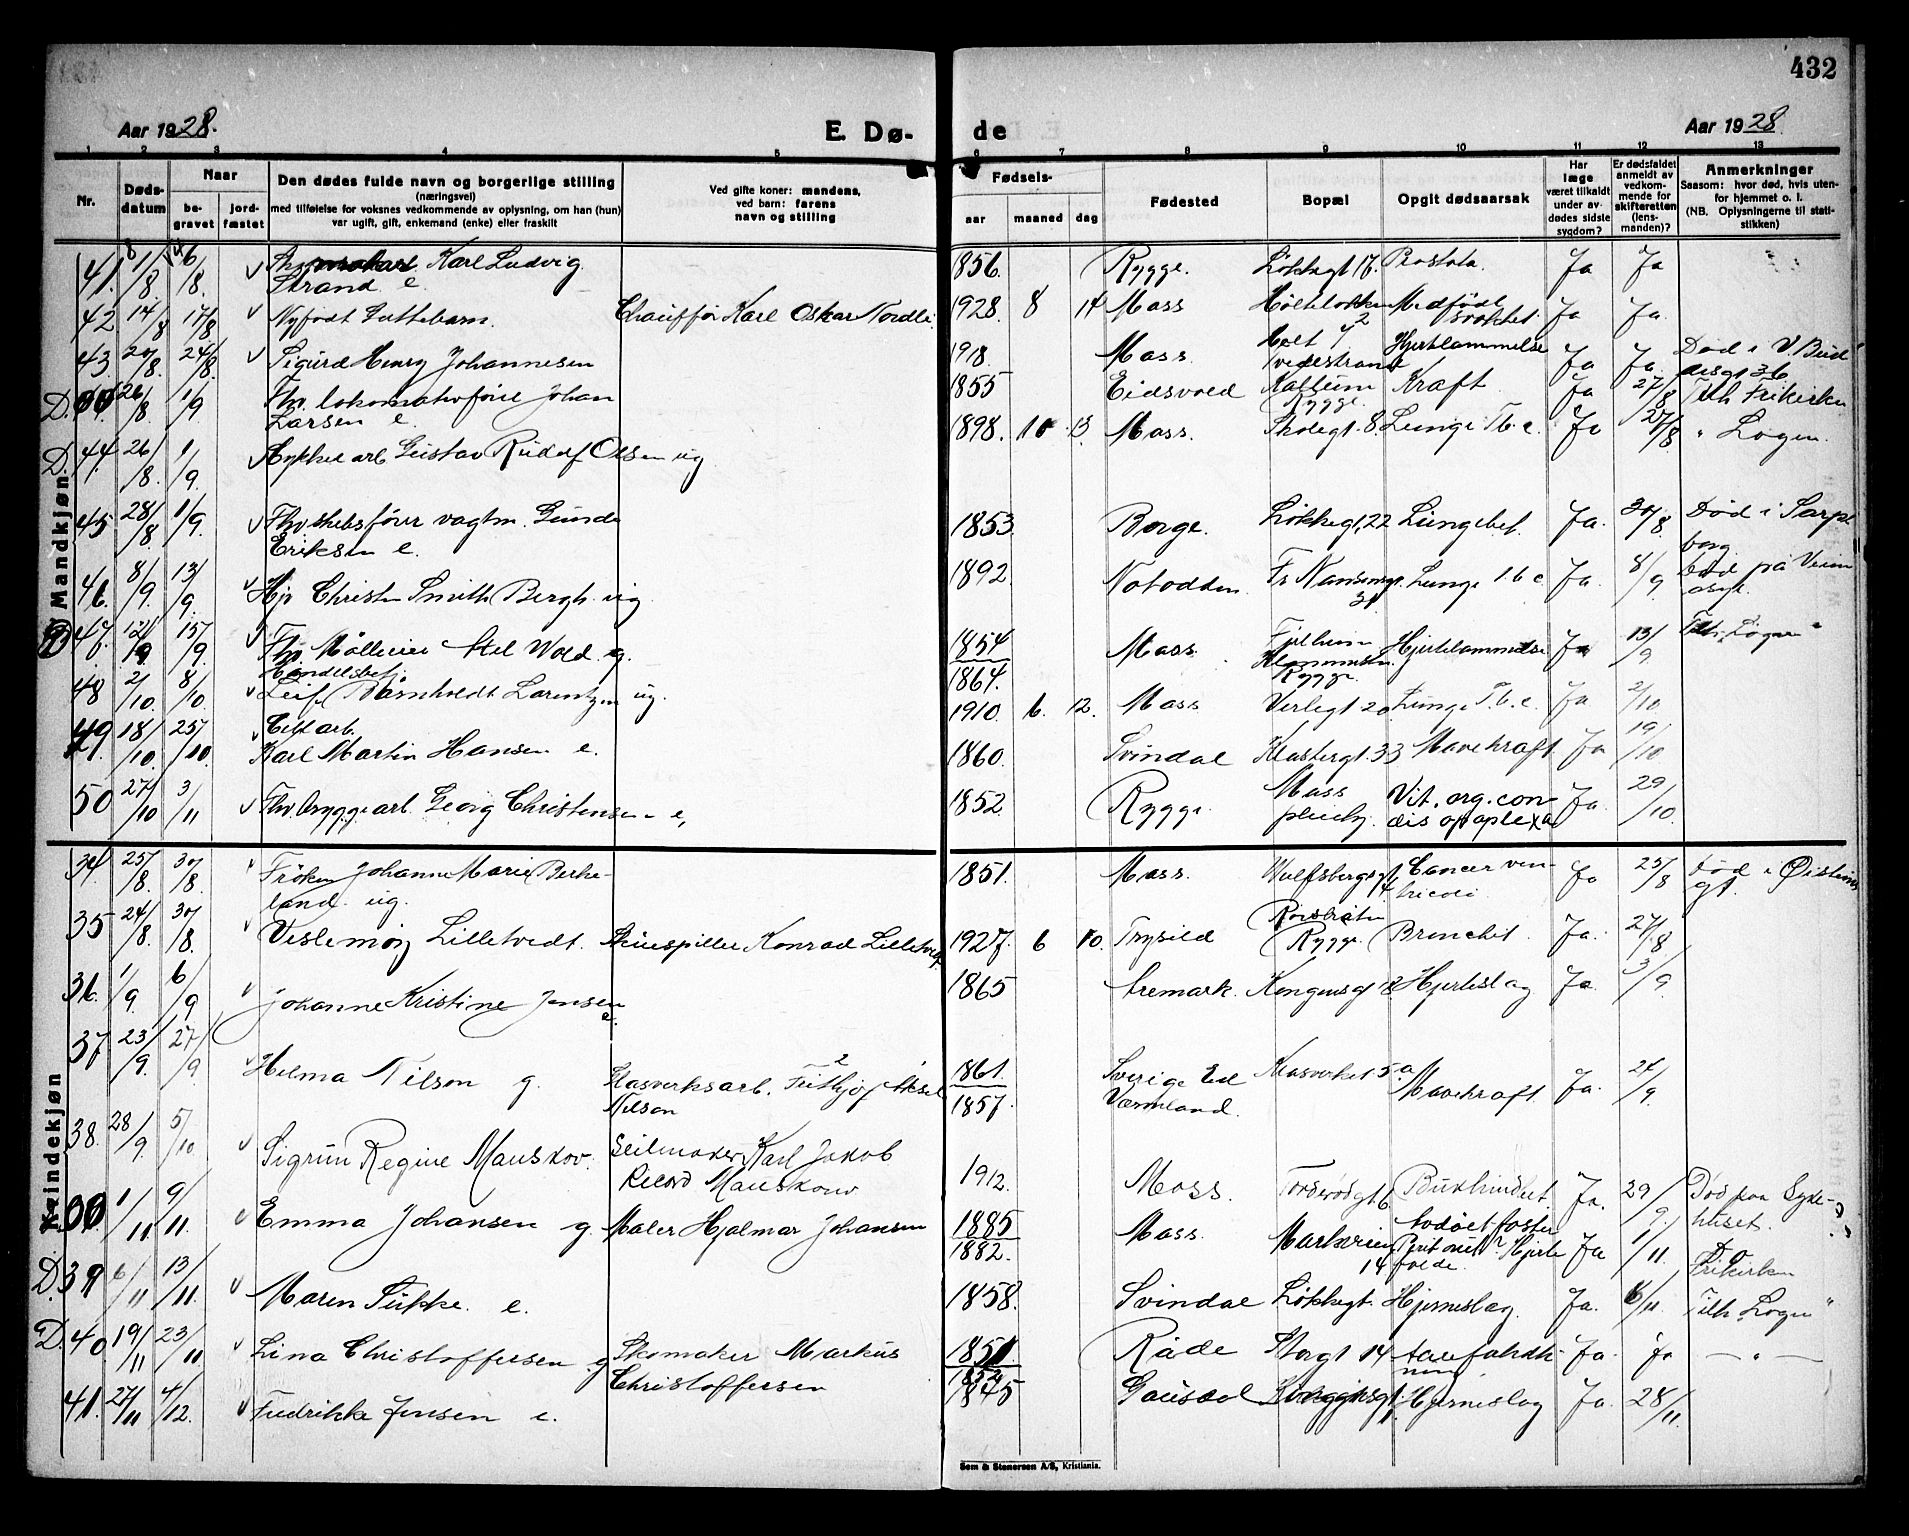 432
Aar 1928.
E. Dø-
de
Aar 1928.
1 2 3 4 5 6 7 8 9 10 11 12 13
Nr.
Døds-
datum
Naar
be-
gravet
jord-
fæstet
Den dødes fulde navn og borgerlige stilling
(næringsvei)
med tilføielse for voksnes vedkommende av oplysning, om han (hun)
var ugift, gift, enkemand (enke) eller fraskilt
Ved gifte koner: mandens,
ved barn: farens
navn og stilling
Fødsels-
aar maaned dag
Fødested
Bopæl
Opgit dødsaarsak
Har
læge
været tilkaldt
under av-
dødes sidste
sygdom?
Er dødsfaldet
anmeldt av
vedkom-
mende for
skifteretten
(lens-
manden)?
Anmerkninger
Saasom: hvor død, hvis uten-
for hjemmet o. l.
(NB. Oplysningerne til stati-
stikken)
Mandkjøn
41. 1/8 6/8. Karl Ludvig
Strand e. 1856. Rygge. Løkkegt 17. Prostata. Ja Ja
42 14/8 17/8 Nyfødt Guttebarn. Chauffør Karl Oskar Nordli 1928. 8 14 Moss Medfødt
svakhet. Ja Ja.
43. 20/8. 24/8. Sigurd Henry Johannesen 1918. Moss. Holt
Vedestrand Hjertelammelse Ja Ja. Død i V. Bud
D. 26/8 1/9 Fhv. lokomotivfører Johan
Larsen e. 1855 Eidsvold Rygge. Kræft. Ja 27/8 Tilh Frikirken
D. 44. 26/8. 1/9. Gustav Rudolf Olsen ug 1898. 10 13 Moss. Skolegt. 8. Lunge Tb. c. Ja 27/8 " Logen.
45 28/8 1/9 Fhv. vagtm. Gunde
Eriksen e. 1853. Borge. Løkkegt, 22 Lungebet. Ja. 30/8 Død i Sarps
borg.
46. 8/9. 13/9. Christen Smith Bergh. ug. 1892 Notodden. Fr Nansensgt.
31 Lunge t. b. c. Ja. 8/9
47. 12/9 15/9 Fhv Wold. g. 1854
1864. Moss. Rygge. Hjertelammelse Ja 13/9 Tilh. Logen
48 2/10. 8/10. Handelsbetj.
Leif Lorentzen ug. 1910. 6. 12. Moss Verlegt 20 Lunge T.b.c. Ja 2/10
49 18/10. 25/10. arb.
Karl Martin Hansen e. 1860. Svindal 33 Mavekræft. Ja 19/10
50 27/10 3/11 Fhv. bryggearb. Georg Christensen - e, 1852. Rygge. Moss
pleiehj. Vit. org. con-
dis apoplexia Ja. 29/10.
Kvindekjøn
34. 25/8. 30/8. Frøken Johanne Marie Berke-
land. ug. 1851. Moss. Wulfsbergsgt
4. Cancer ven-
triculi Ja 25/8 Død i
gt.
35 24/8. 30/8. Veslemøy Lilletvedt. Konrad Lilletvedt 1927. 6 10. Trysild Rygge Bronchit. Ja. 27/8
36. 1/9. 6/9 Johanne Kristine Jensen
e. 1865 Aremark. Kongensgt Hjerteslag Ja. 3/9.
37 23/9. 27/9. Helma Nilson g. Glasverksarb. Fritjof Aksel
Nilson 1861.
1857. Sverige Ed
Værmland. Glasverket 5a Mavekræft. Ja. 24/9.
38. 28/9. 5/10 Sigrun Regine Mauskov. Seilmaker Karl Jakob
Ricard Mauskouv 1912. Moss. Torderødgt 6. Bukhindbet. Ja. 29/9. Død paa Syke-
huset.
1/11 9/11. Emma Johansen g. Maler Hjalmar Johansen 1885
1882. Moss. Markveien
14 Ja 1/11 Do
Frikirken
D. 39 6/11 13/11. Maren Tukke. e. 1858. Svindal Løkkegt. Hjerneslag Ja. 6/11. Tilh. Logen "
D. 40. 19/11 23/11 Lina Christoffersen g Skomaker Markus
Christoffersen 1851 Råde Storgt 14 Ja. Ja — " —
41. 27/11 4/12. Fredrikke Jensen e. 1845 Gausdal Kongensgt Hjerneslag Ja. 28/11.
Sem & Stenersen A/S, Kristiania.